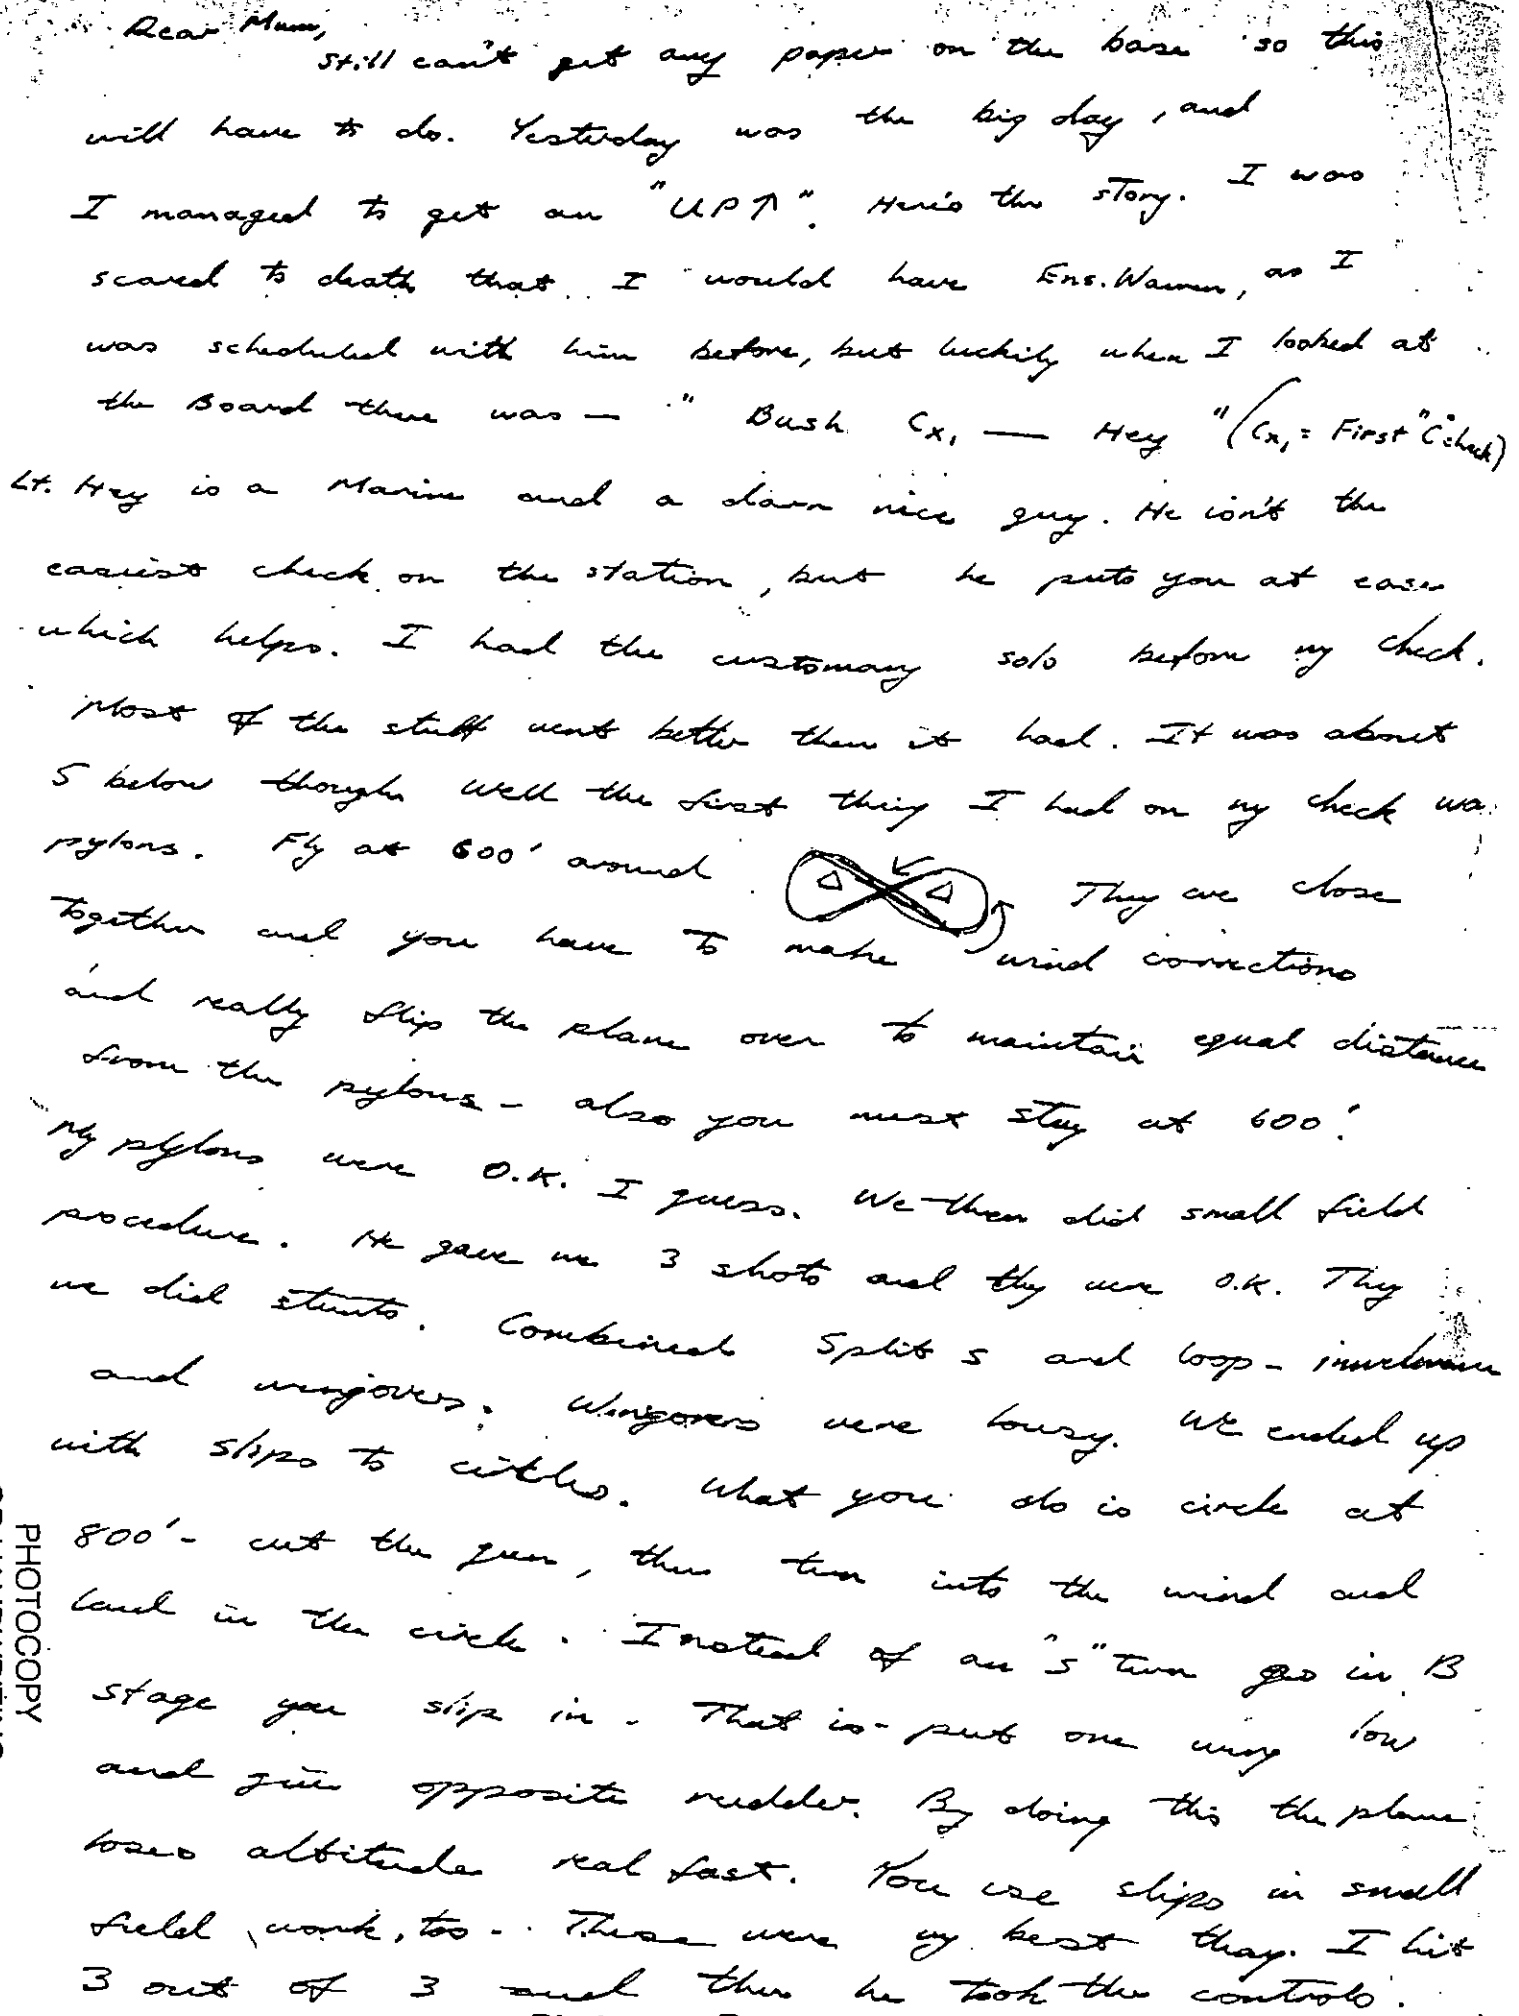 Dear Mum,
Still can't get any paper on the base so this
will have to do. Yesterday was the big day, and
I managed to get an "UP↑". Here's the story. I was
scared to death that I would have Ens. Warren, as I
was scheduled with him before, but luckily when I looked at
the Board there was — " Bush Cx, — Hey " (Cx, = First "C" check)
Lt. Hey is a Marine and a darn nice guy. He isn't the
easiest check on the station, but he puts you at ease
which helps. I had the customary solo before my check.
Most of the stuff went better than it had. It was about
5 below though. Well the first thing I had on my check wa
pylons. Fly at 600' around They are close
together and you have to make wind corrections
and really flip the plane over to maintain equal distance
from the pylons - also you must stay at 600'.
My pylons were O.K. I guess. We then did small field
procedure. He gave me 3 shots and they were O.K. They
we did stunts. Combined Split S and loop -
and wingovers. Wingovers were lousy. We ended up
with slips to circles. What you do is circle at
800' - cut the gun, then turn into the wind and
land in the circle. Instead of an "S" turn as in B
stage you slip in. That is - put one wing low
and give opposite rudder. By doing this the plane
loses altitude real fast. You use slips in small
field work, too. These were my best thing. I hit
3 out of 3 and then he took the controls.
PHOTOCOPY